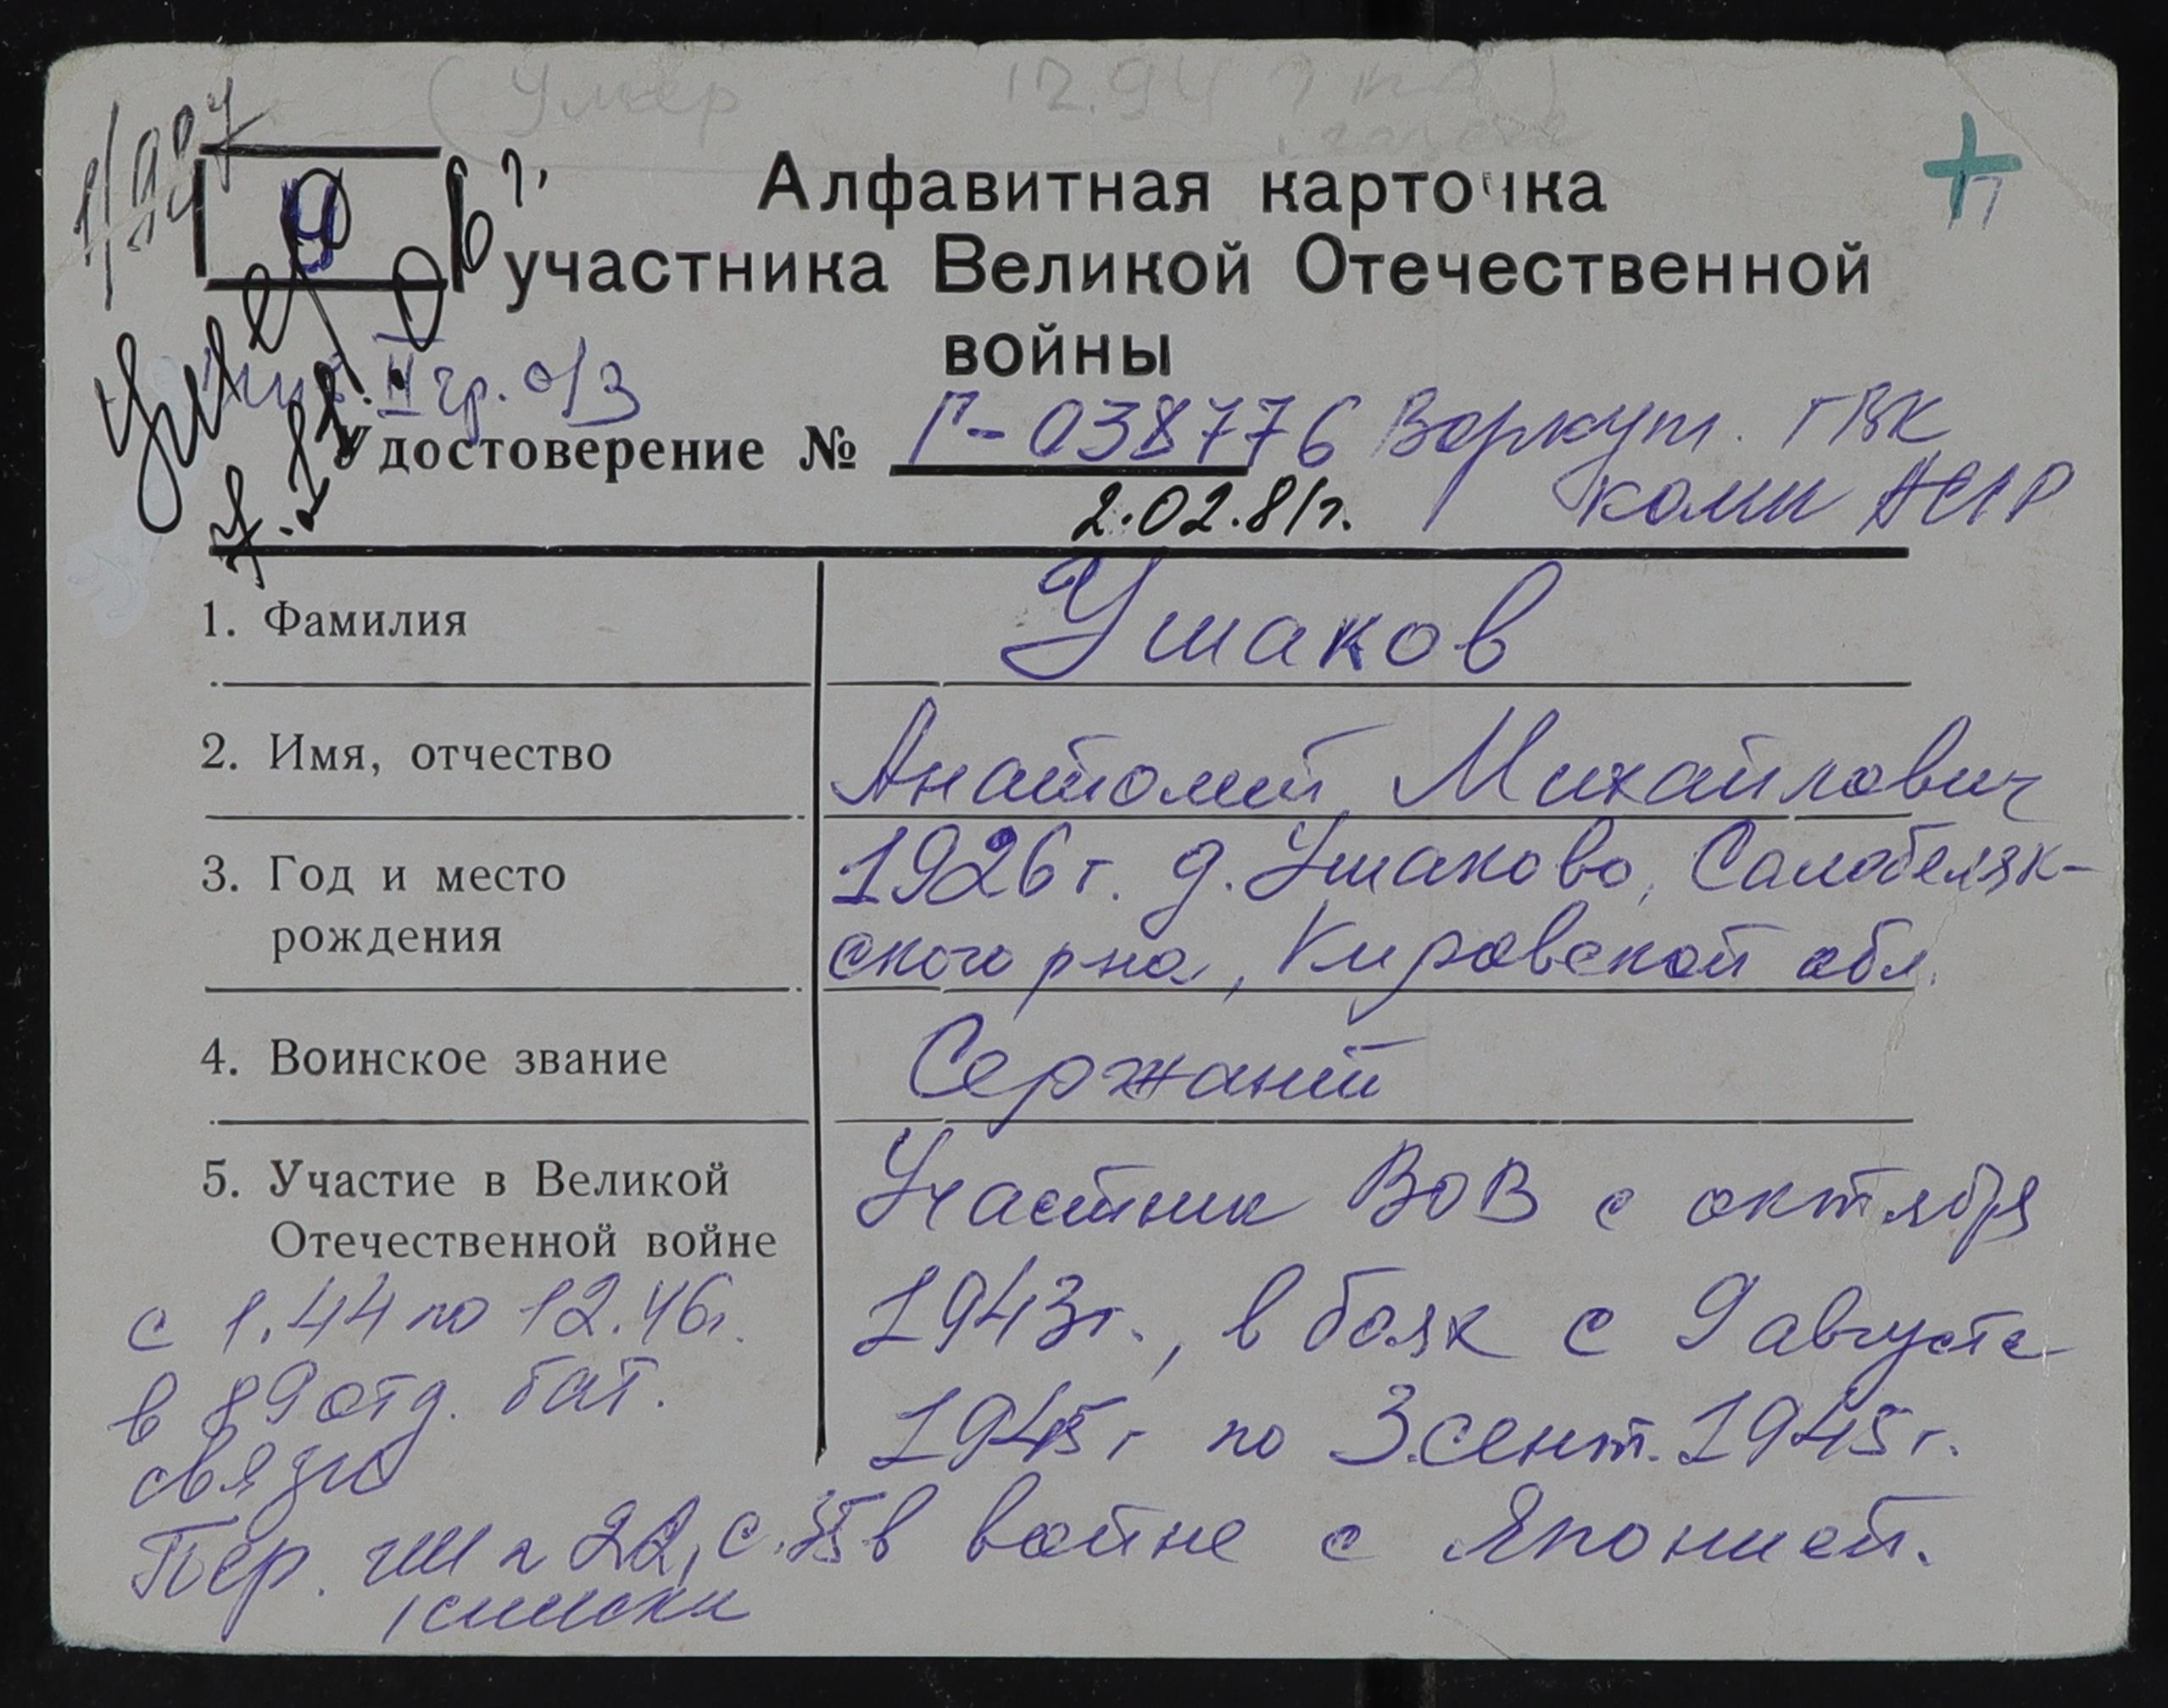 (Умер 12.94 ? по
газете
У
Алфавитная карточка
участника Великой Отечественной
войны
инв. II гр. о/з
Умер
Удостоверение № Г-038776 Воркут. ГВК
2.02.81г. Коми АССР
1. Фамилия Ушаков
2. Имя, отчество Анатолий Михайлович
3. Год и место 1926г. д. Ушаково, Салобеляк-
рождения ского р-на, Кировской обл.
4. Воинское звание Сержант
5. Участие в Великой Участник ВОВ с октября
Отечественной войне
с 1.44 по 12.46г. 1943г., в боях с 9 августа
в 89 отд. бат. 1945г по 3 сент. 1945г.
связи
Пер. ГШ № 22, с. 35 в войне с Японией.
списки